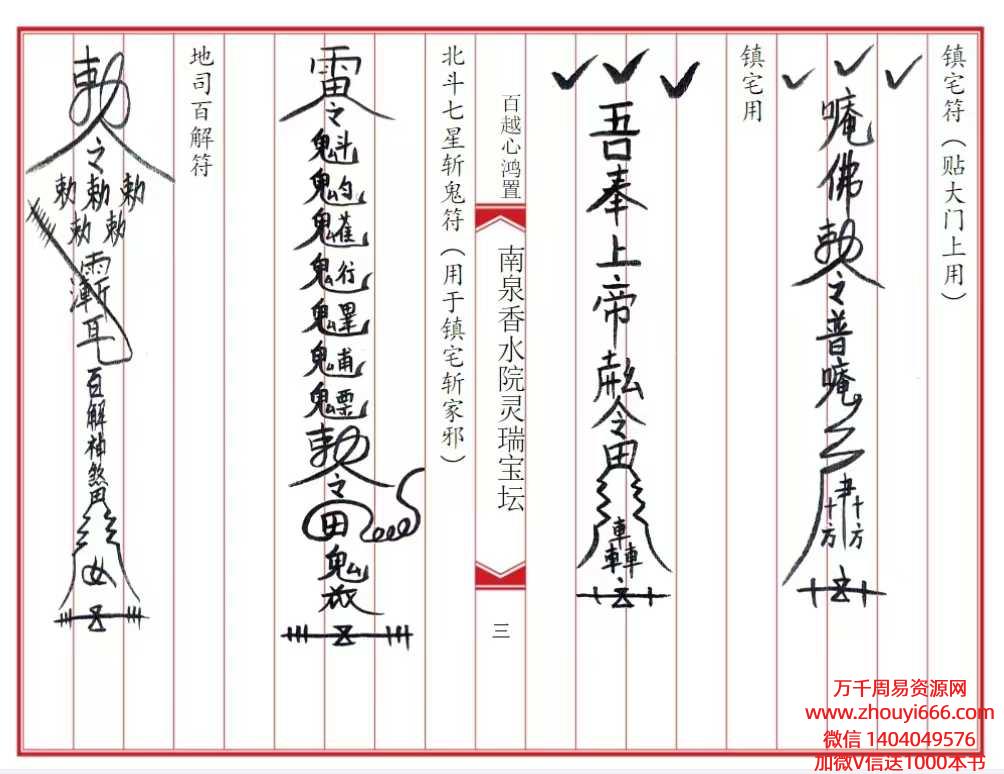 镇宅符（贴大门上用）
唵佛勅令之普唵
十方
十方
镇宅用
吾奉上帝
令田
車車車
百越心鸿置
南泉香水院灵瑞宝坛
三
北斗七星斩鬼符（用于镇宅斩家邪）
雷之
勅令之田鬼
地司百解符
勅令之
勅勅勅
勅勅
耳
百解神煞
万千周易资源网
www.zhouyi666.com
微信 1404049576
加微V信送1000本书